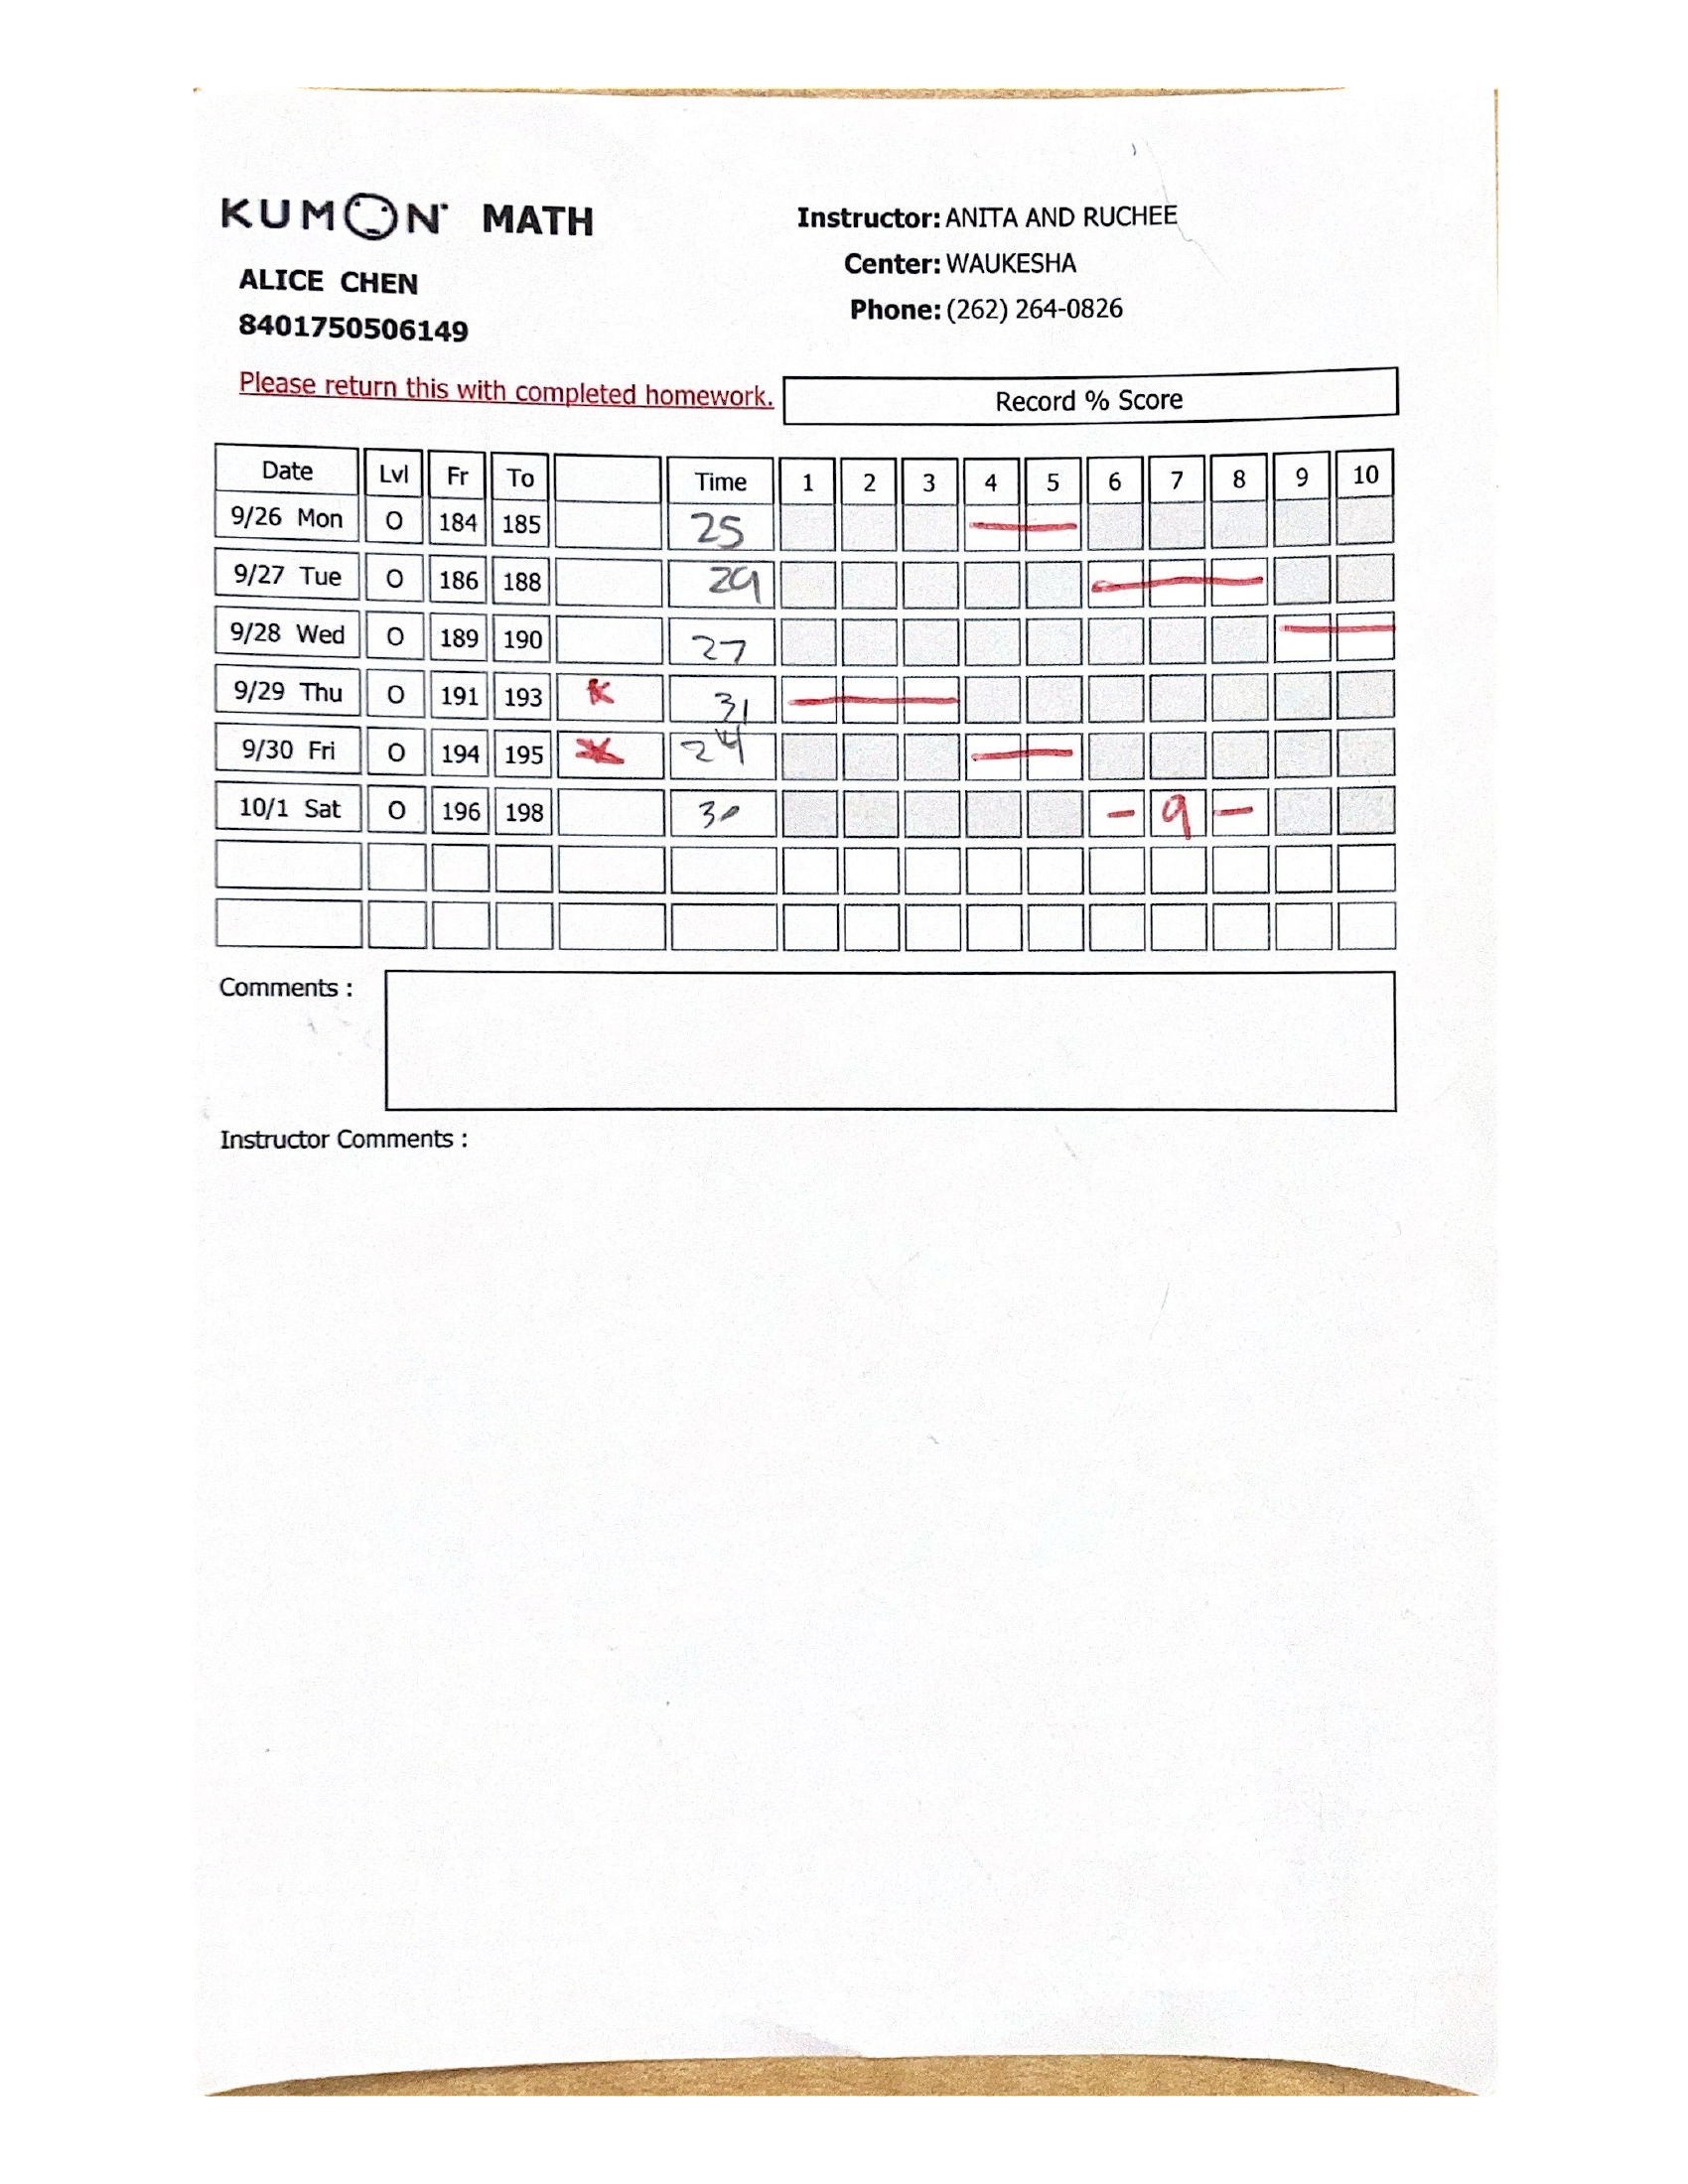 KUMON MATH
Instructor: ANITA AND RUCHEE
ALICE CHEN
Center: WAUKESHA
8401750506149
Phone: (262) 264-0826
Please return this with completed homework.
Record % Score
Date Lvl Fr To Time 1 2 3 4 5 6 7 8 9 10
9/26 Mon O 184 185 25
9/27 Tue O 186 188 29
9/28 Wed O 189 190 27
9/29 Thu O 191 193 31
9/30 Fri O 194 195 24
10/1 Sat O 196 198 30 - 9 -
Comments :
Instructor Comments :